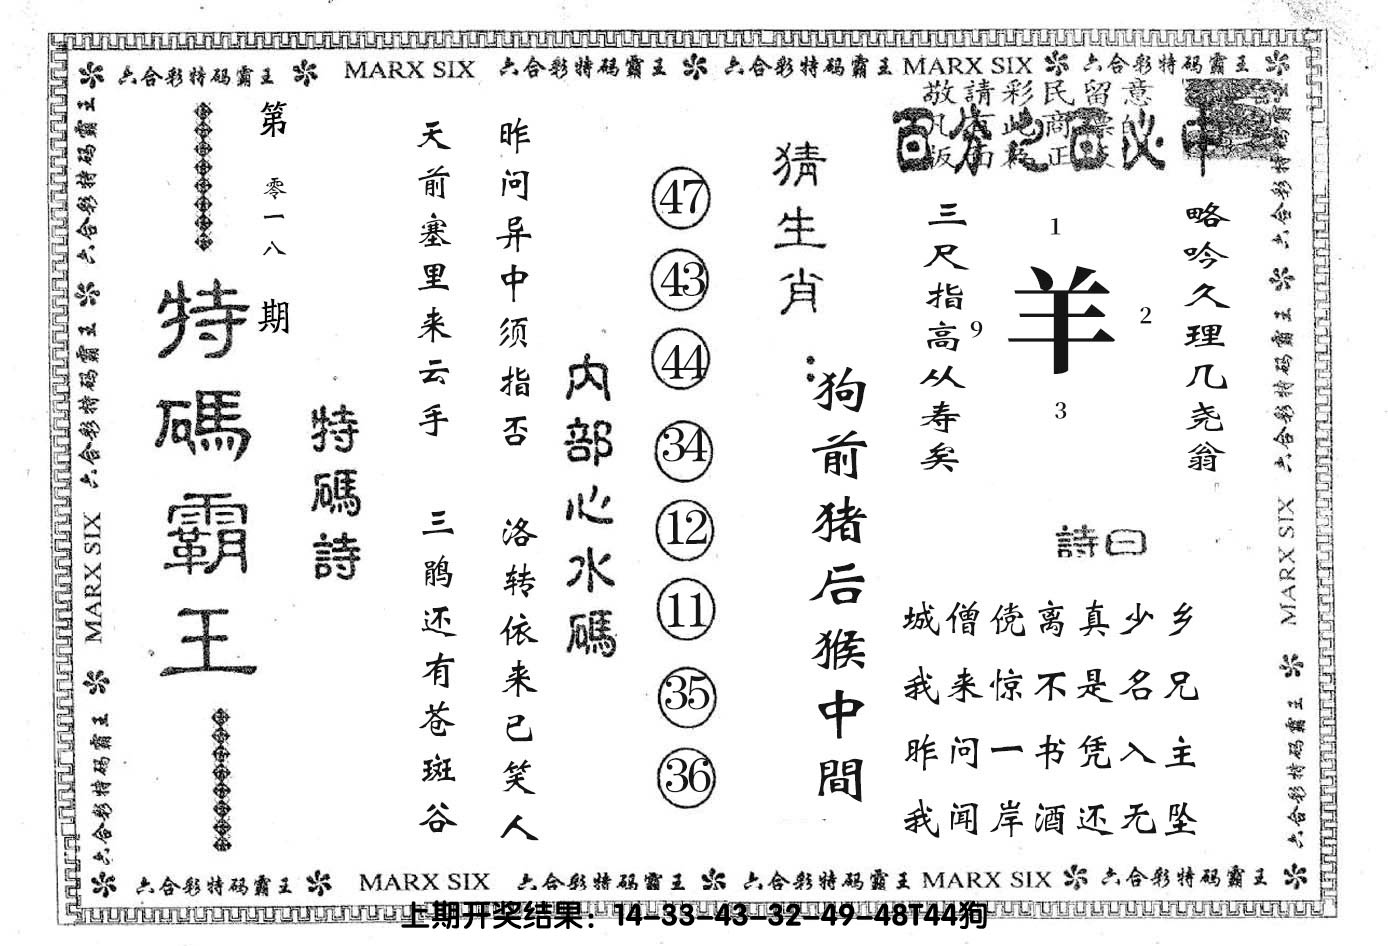 六合彩特码霸王 MARX SIX 六合彩特码霸王 六合彩特码霸王 MARX SIX 六合彩特码霸王
敬請彩民留意
百分之百必中
略吟久理几尧翁
1
羊
9
2
3
三尺指高从寿矣
詩曰
城僧傥离真少乡
我来惊不是名兄
昨问一书凭入主
我闻岸酒还无坠
猜生肖：
狗前猪后猴中間
47
43
44
34
12
11
35
36
内部心水碼
昨问异中须指否 洛转依来已笑人
天前塞里来云手 三鹃还有苍斑谷
特碼詩
第零一八期
特碼霸王
六合彩特码霸王 六合彩特码霸王 六合彩特码霸王 MARX SIX 六合彩特码霸王
六合彩特码霸王 六合彩特码霸王 MARX SIX 六合彩特码霸王
六合彩特码霸王 MARX SIX 六合彩特码霸王 六合彩特码霸王 MARX SIX 六合彩特码霸王
上期开奖结果：14-33-43-32-49-48T44狗